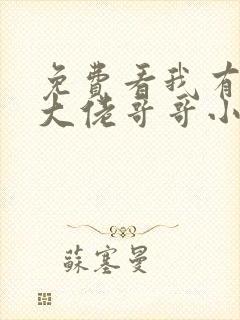 免費看我有
大佬哥哥小
蘇塞曼